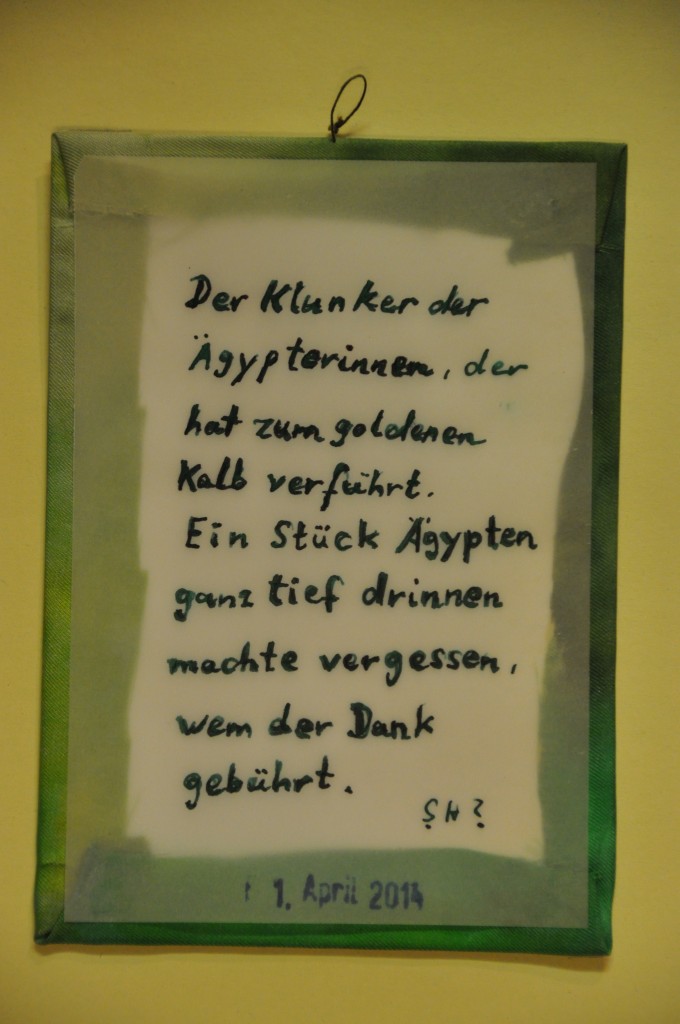 Der Klunker der
Ägypterinnen, der
hat zum goldenen
Kalb verführt.
Ein Stück Ägypten
ganz tief drinnen
machte vergessen,
wem der Dank
gebührt.
1. April 2014